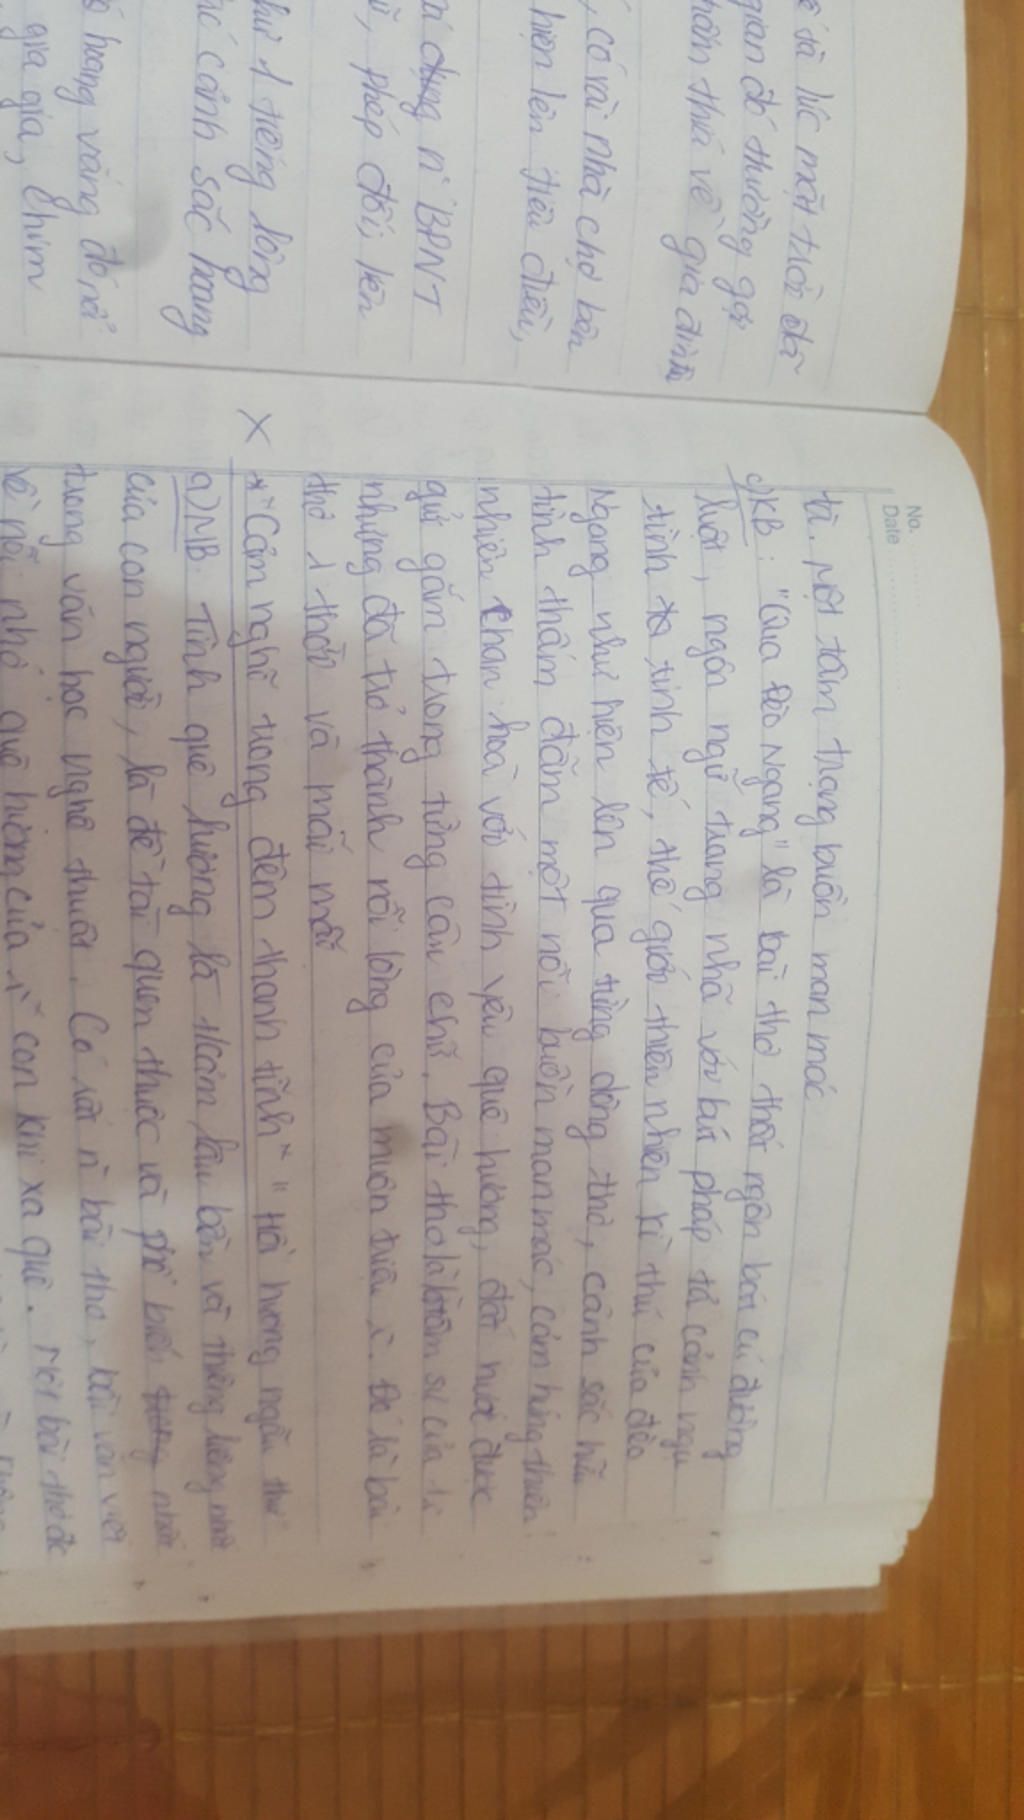 ế tà lúc mặt trời đã
gian đó thường gợi
thấm thía về gia đình
, có vài nhà chợ bên
hiện lên tiêu điều,
dụng n' BPNT
, phép đối, lên
1 tiếng lòng
cảnh sắc hoang
hoang vắng đó nổi
gia gia, chim
No.
Date
tả. Một tâm trạng buồn man mác
c) KB: "Qua Đèo Ngang" là bài thơ thất ngôn bát cú đường
luật, ngôn ngữ trang nhã với bút pháp tả cảnh ngụ
tình tinh tế, thế giới thiên nhiên kì thú của đèo
Ngang như hiện lên qua từng dòng thơ, cảnh sắc hữu
tình thấm đẫm một nỗi buồn man mác, cảm hứng thiên
nhiên chan hoà với tình yêu quê hương, đất nước được
gửi gắm trong từng câu chữ. Bài thơ là tâm sự của
nhưng đã trở thành nỗi lòng của muôn triệu Đó là bài
thơ 1 thời và mãi mãi
X * Cảm nghĩ trong đêm thanh tĩnh " Hồi hương ngẫu thư
a) MB. Tình quê hương là t/cảm lâu bền và thiêng liêng nhất
của con người, là đề tài quen thuộc và phổ biến nhất
trong văn học nghệ thuật. Có rất n' bài thơ, bài văn viết
về nỗi nhớ quê hương của con khi xa quê. Một bài thơ